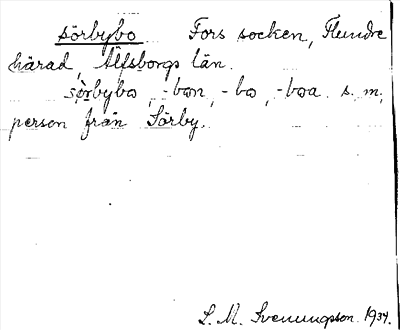 sörbybo Fors socken, Flundre
härad, Älfsborgs län.
sörbybo, -bon, -bo, -boa. s. m.
person från Sörby.
S. M. Svenungsson. 1934.